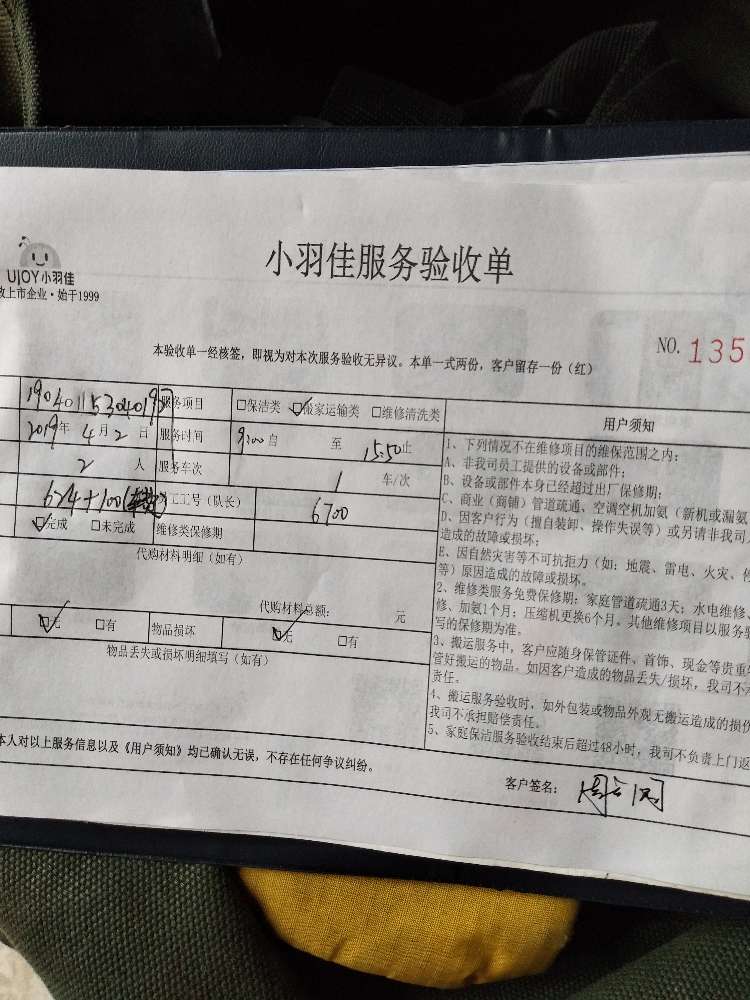 UJOY小羽佳
上市企业·始于1999
小羽佳服务验收单
NO. 135
本验收单一经核签，即视为对本次服务验收无异议。本单一式两份，客户留存一份（红）
服务项目 □保洁类 ☑搬家运输类 □维修清洗类
2019年 4月2日 服务时间 9:00自 至 15:50止
2 人 服务车次 1 车/次
624+100 工工号（队长） 6700
☑完成 □未完成 维修类保修期
代购材料明细（如有）
代购材料总额： 元
☑无 □有 物品损坏 ☑无 □有
物品丢失或损坏明细填写（如有）
用户须知
1、下列情况不在维修项目的维保范围之内：
A、非我司员工提供的设备或部件；
B、设备或部件本身已经超过出厂保修期；
C、商业（商铺）管道疏通、空调空机加氨（新机或漏氨
D、因客户行为（擅自装卸、操作失误等）或另请非我司
造成的故障或损坏；
E、因自然灾害等不可抗拒力（如：地震、雷电、火灾、
等）原因造成的故障或损坏。
2、维修类服务免费保修期：家庭管道疏通3天；水电维修、
修、加氨1个月；压缩机更换6个月。其他维修项目以服务
写的保修期为准。
3、搬运服务中，客户应随身保管证件、首饰、现金等贵重
管好搬运的物品。如因客户造成的物品丢失/损坏，我司不
责任。
4、搬运服务验收时，如外包装或物品外观无搬运造成的损
我司不承担赔偿责任。
5、家庭保洁服务验收结束后超过48小时，我司不负责上门返
本人对以上服务信息以及《用户须知》均已确认无误，不存在任何争议纠纷。
客户签名：